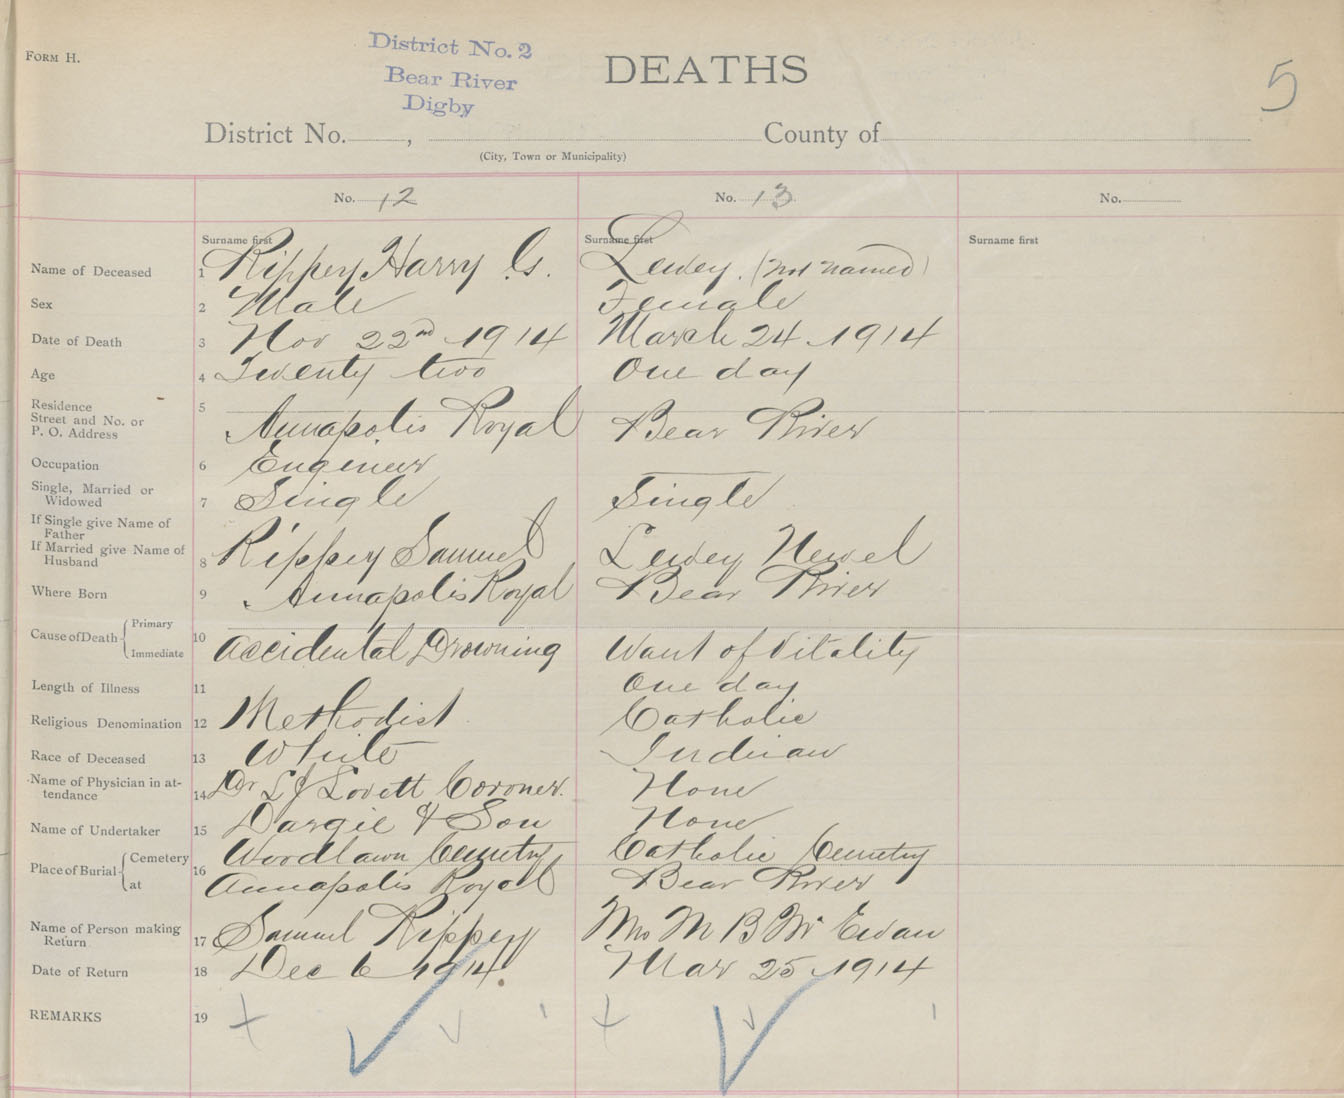 FORM H.
District No. 2
Bear River
Digby
DEATHS
5
District No. , County of
(City, Town or Municipality)
No. 12 No. 13 No.
Surname first Surname first Surname first
Name of Deceased 1 Rippey Harry G. Lewey. (not named)
Sex 2 Male Female
Date of Death 3 Nov 22nd 1914 March 24 1914
Age 4 Twenty two One day
Residence
Street and No. or
P. O. Address 5 Annapolis Royal Bear River
Occupation 6 Engineer
Single, Married or
Widowed 7 Single Single
If Single give Name of
Father
If Married give Name of
Husband 8 Rippey Samuel Lewey Newel
Where Born 9 Annapolis Royal Bear River
Cause of Death Primary
Immediate 10 Accidental Drowning Want of Vitality
Length of Illness 11 One day
Religious Denomination 12 Methodist Catholic
Race of Deceased 13 White Indian
Name of Physician in at-
tendance 14 Dr L J Lovett Coroner. None
Name of Undertaker 15 Dargie & Son None
Place of Burial Cemetery 16 Woodlawn Cemetry Catholic Cemetry
at Annapolis Royal Bear River
Name of Person making
Return 17 Samuel Rippey Mrs M B Mc Ewan
Date of Return 18 Dec 6 1914. Mar 25 1914
REMARKS 19